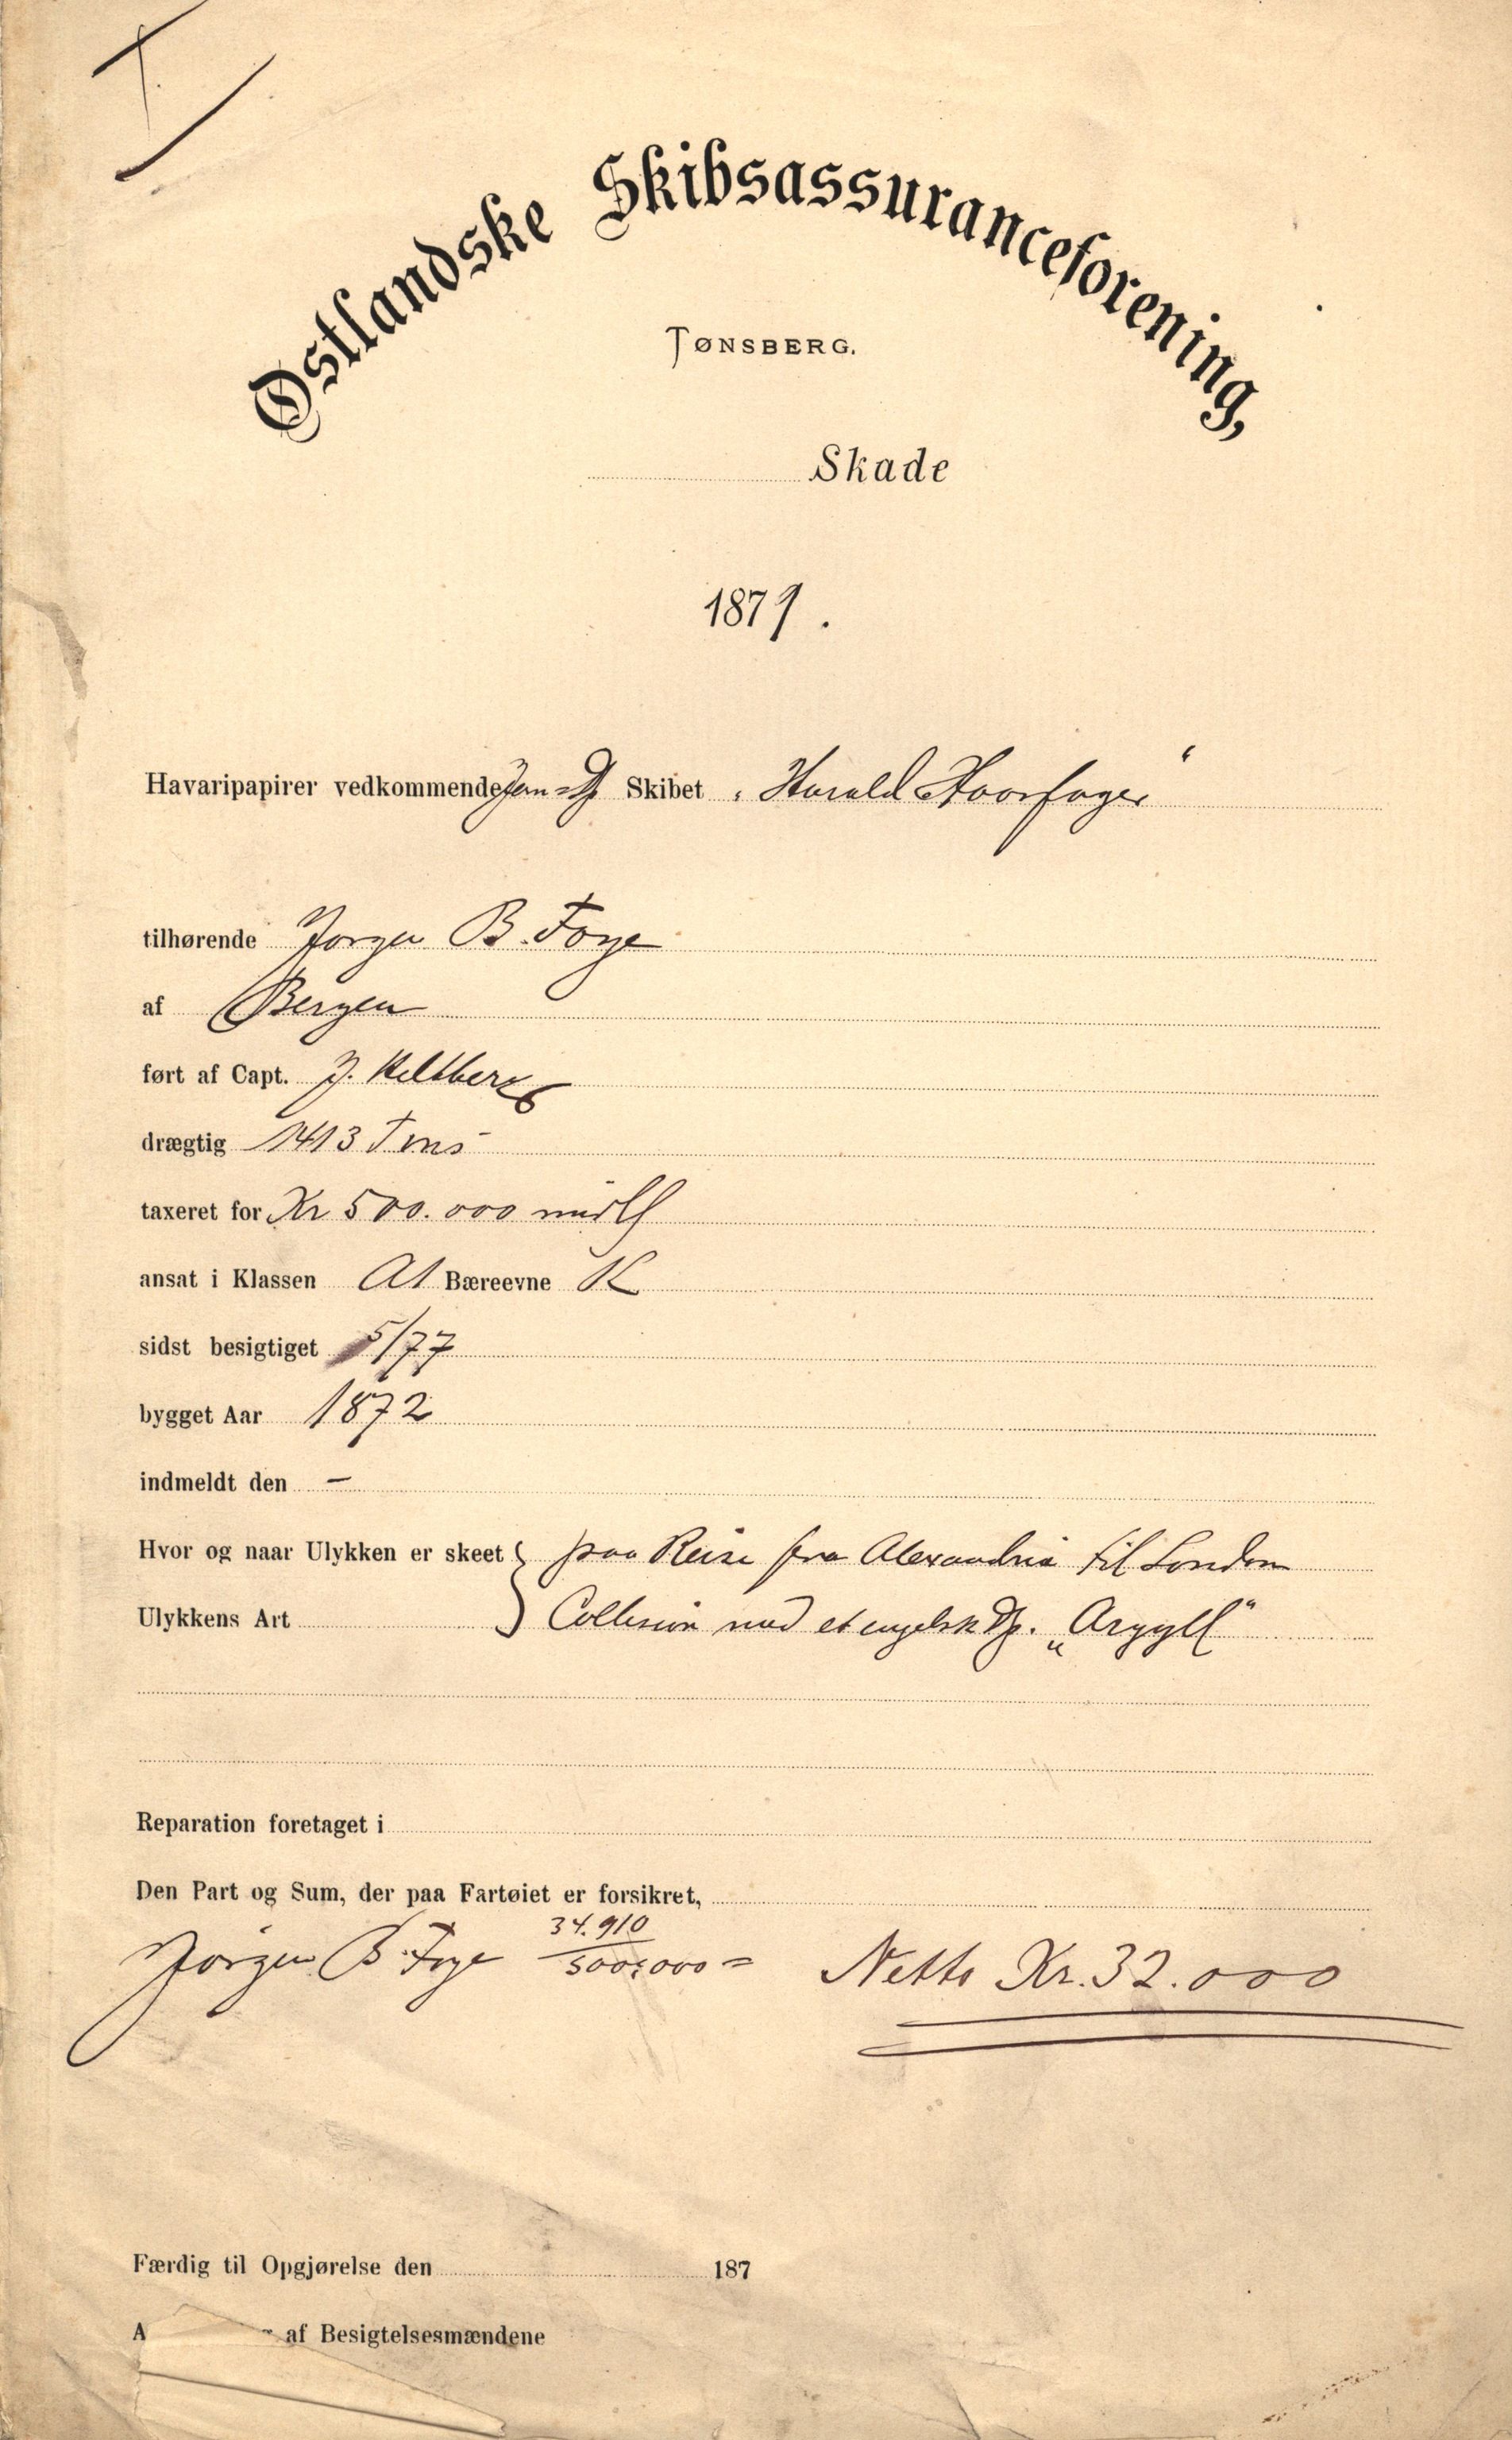 Østlandske Skibsassuranceforening,
TØNSBERG.
Skade
1879.
Havaripapirer vedkommende Jern-Df Skibet „Harald Haarfager“
tilhørende Jørgen B. Faye
af Bergen
ført af Capt. J. Heltberg
drægtig 1413 Tons
taxeret for Kr 500.000
ansat i Klassen A1 Bæreevne K
sidst besigtiget 5/77
bygget Aar 1872
indmeldt den —
Hvor og naar Ulykken er skeet } paa Reise fra Alexandria til London
Ulykkens Art } Collision med et engelsk Df. „Argyll“
Reparation foretaget i
Den Part og Sum, der paa Fartøiet er forsikret,
Jørgen B. Faye 34.910/500.000 = Netto Kr. 32.000
Færdig til Opgjørelse den 187
af Besigtelsesmændene